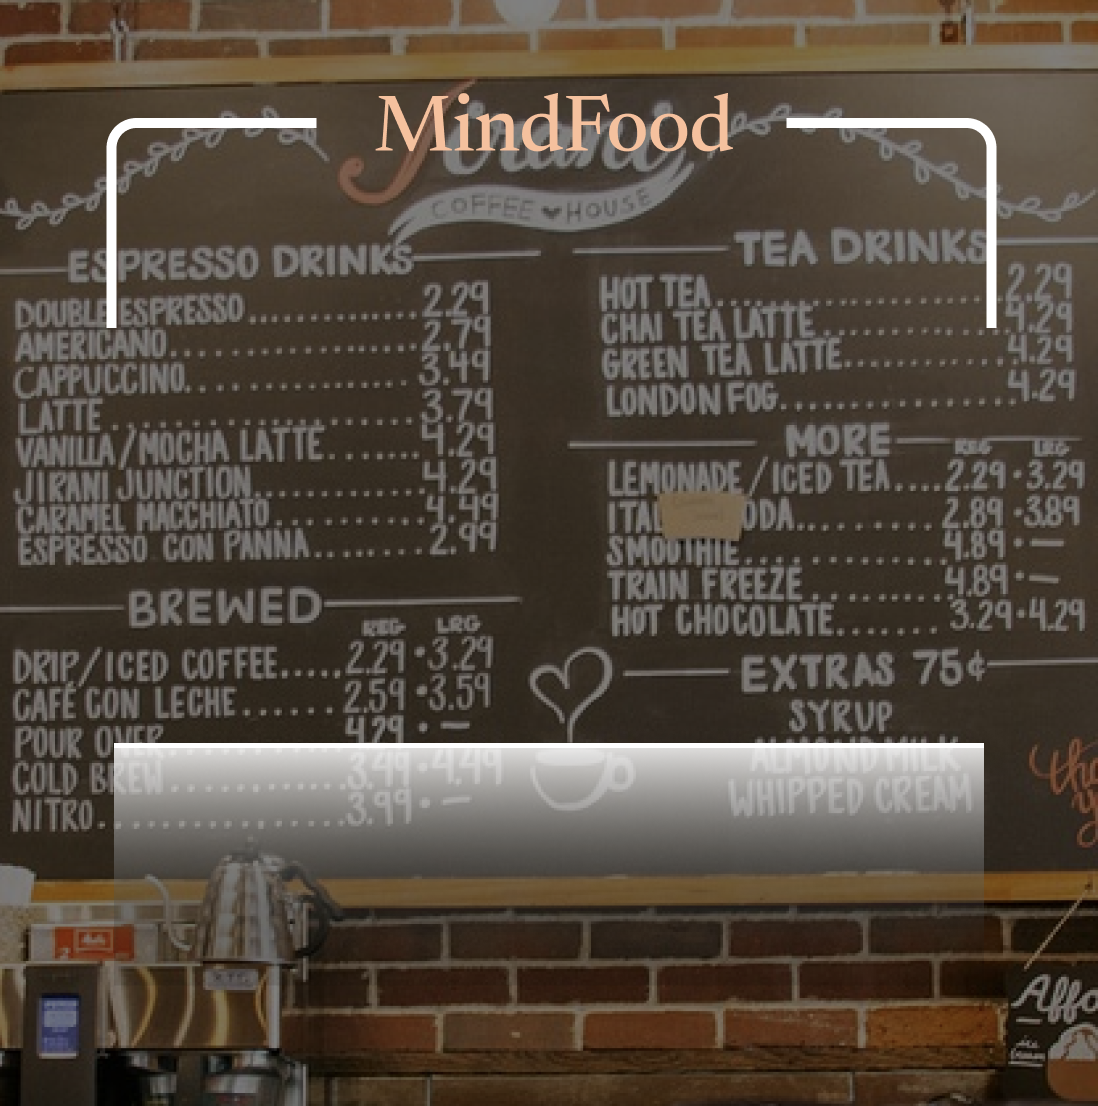 MindFood
Jirani
COFFEE HOUSE
ESPRESSO DRINKS
DOUBLE ESPRESSO 2.29
AMERICANO 2.79
CAPPUCCINO 3.49
LATTE 3.79
VANILLA/MOCHA LATTE 4.29
JIRANI JUNCTION 4.29
CARAMEL MACCHIATO 4.49
ESPRESSO CON PANNA 2.99
BREWED
REG LRG
DRIP/ICED COFFEE 2.29 • 3.29
CAFÉ CON LECHE 2.59 • 3.59
POUR OVER 4.29 • —
COLD BREW 3.49 • 4.49
NITRO 3.99 • —
TEA DRINKS
HOT TEA 2.29
CHAI TEA LATTE 4.29
GREEN TEA LATTE 4.29
LONDON FOG 4.29
MORE
REG LRG
LEMONADE/ICED TEA 2.29 • 3.29
ITAL ODA 2.89 • 3.89
SMOOTHIE 4.89 • —
TRAIN FREEZE 4.89 • —
HOT CHOCOLATE 3.29 • 4.29
EXTRAS 75¢
SYRUP
ALMOND MILK
WHIPPED CREAM
tha
y
Affo
ice
cream